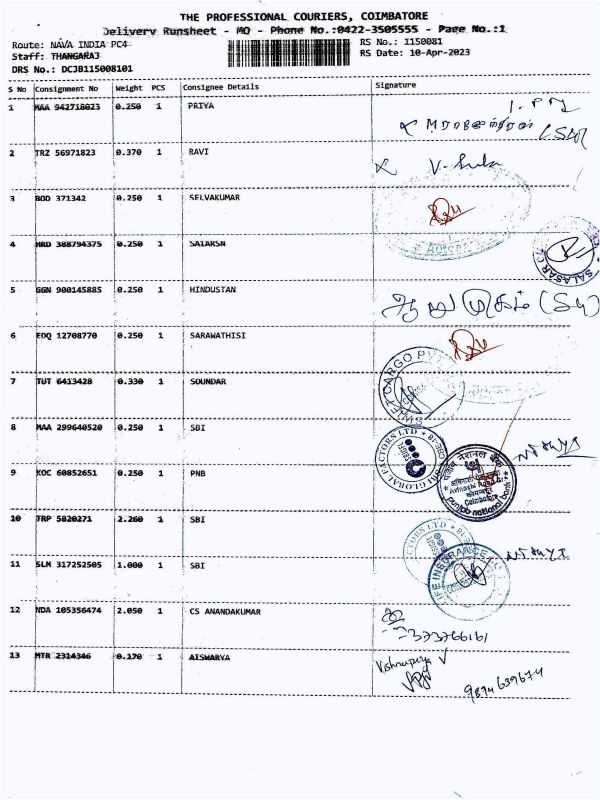 THE PROFESSIONAL COURIERS, COIMBATORE
Delivery Runsheet - MQ - Phone No.:0422-3505555 - Page No.:1
Route: NAVA INDIA PC4 RS No.: 1150081
Staff: THANGARAJ RS Date: 10-Apr-2023
DRS No.: DCJB115008101
S No Consignment No Weight PCS Consignee Details Signature
1 MAA 942718023 0.250 1 PRIYA
2 TRZ 56971823 0.370 1 RAVI
3 BOD 371342 0.250 1 SELVAKUMAR
4 HRD 388794375 0.250 1 SALARSN
SALASAR
5 GGN 900145885 0.250 1 HINDUSTAN
ஆறுமுகம்
6 EDQ 12708770 0.250 1 SARAWATHISI
7 TUT 6413428 0.330 1 SOUNDAR
SWIFT CARGO PVT
8 MAA 299640520 0.250 1 SBI
SBI GLOBAL FACTORS LTD
9 KOC 60852651 0.250 1 PNB
पंजाब नैशनल बैंक
Avinashi Road
Coimbatore
punjab national bank
10 TRP 5820271 2.260 1 SBI
11 SLM 317252505 1.000 1 SBI
LIFE INSURANCE
12 NDA 105356474 2.050 1 CS ANANDAKUMAR
13 MTR 2314346 0.170 1 AISWARYA
9894639674